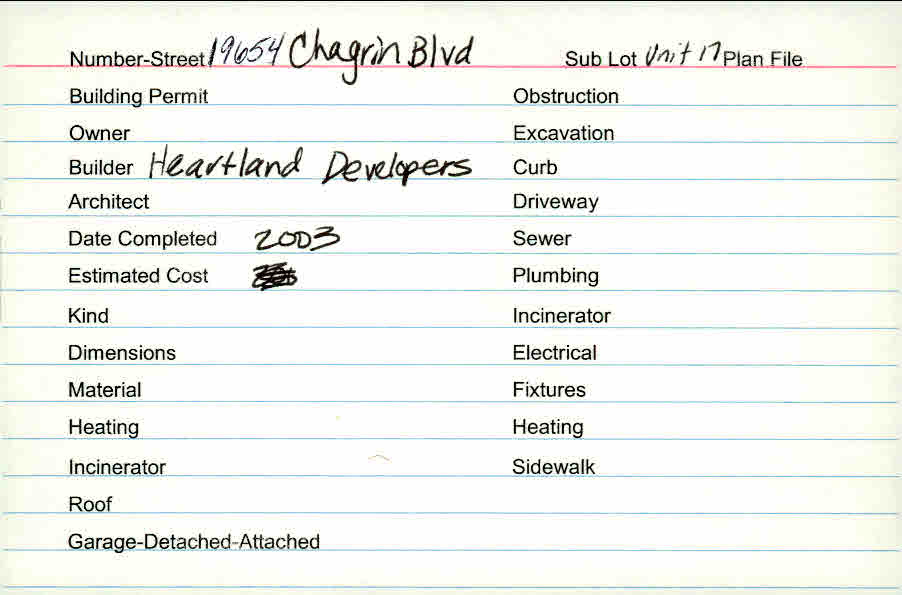 Number-Street 19654 Chagrin Blvd Sub Lot Unit 17 Plan File
Building Permit Obstruction
Owner Excavation
Builder Heartland Developers Curb
Architect Driveway
Date Completed 2003 Sewer
Estimated Cost Plumbing
Kind Incinerator
Dimensions Electrical
Material Fixtures
Heating Heating
Incinerator Sidewalk
Roof
Garage-Detached-Attached